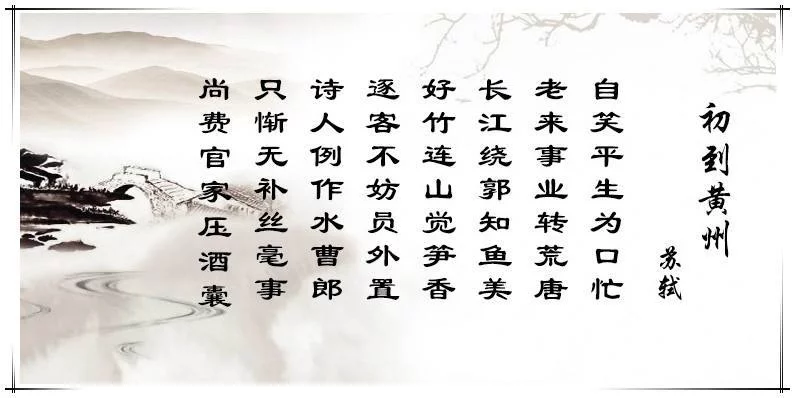 初到黄州
苏轼
自笑平生为口忙
老来事业转荒唐
长江绕郭知鱼美
好竹连山觉笋香
逐客不妨员外置
诗人例作水曹郎
只惭无补丝毫事
尚费官家压酒囊